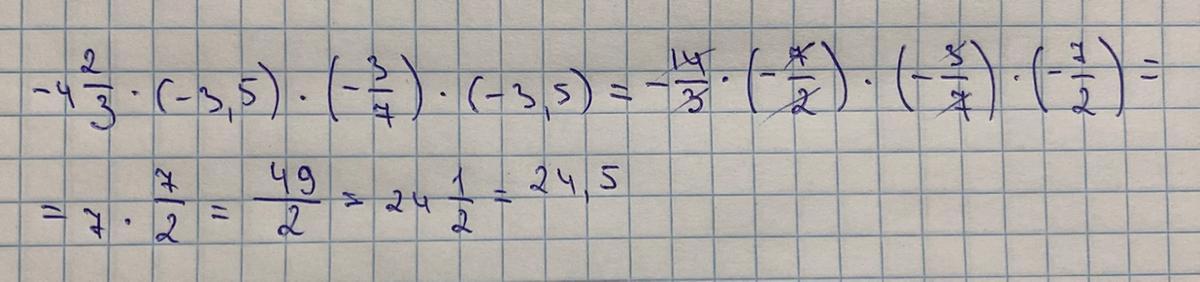 -4 2/3 · (-3,5) · (-3/7) · (-3,5) = -14/3 · (-7/2) · (-3/7) · (-7/2) =
= 7 · 7/2 = 49/2 = 24 1/2 = 24,5